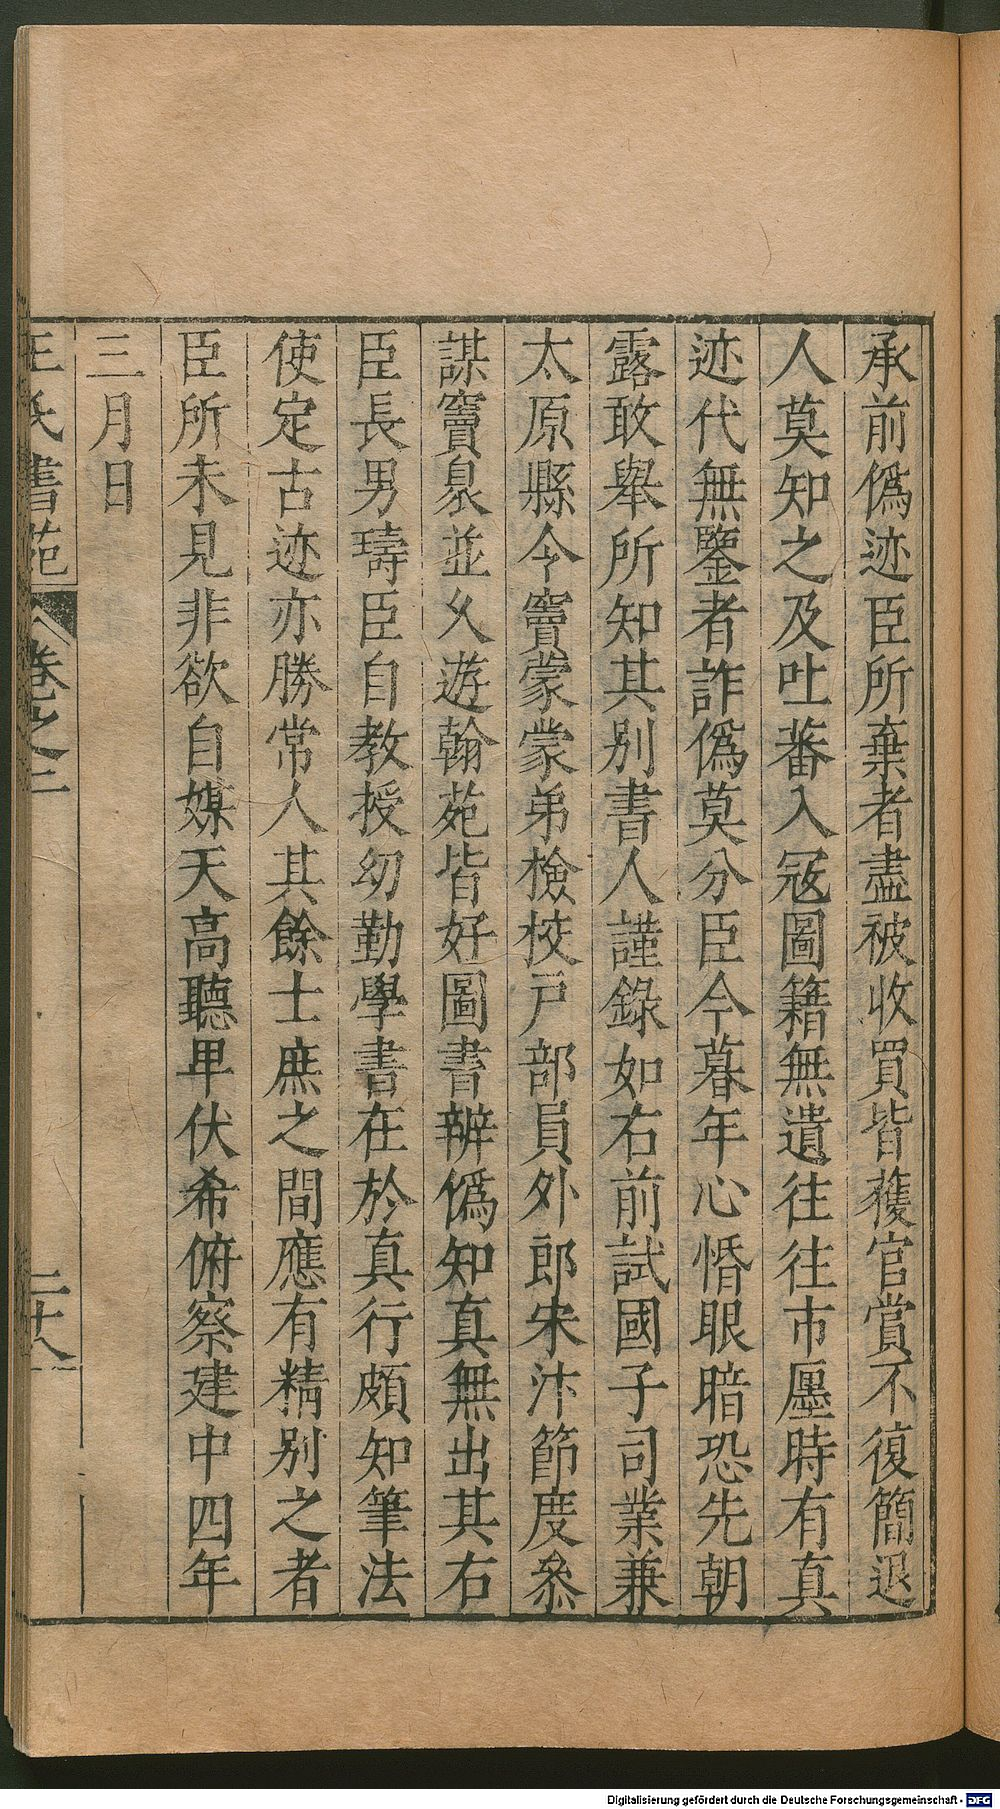 承前偽迹臣所棄者盡被收買皆獲官賞不復簡退
人莫知之及吐蕃入冦圖籍無遺往往市㕓時有真
迹代無鑒者詐偽莫分臣今暮年心惛眼暗恐先朝
露敢舉所知其別書人謹錄如右前試國子司業兼
太原縣令竇蒙蒙弟檢校戸部員外郎宋汴節度叅
謀竇臮並久遊翰苑皆好圖書辨偽知真無出其右
臣長男璹臣自教授幼勤學書在於真行頗知筆法
使定古迹亦勝常人其餘士庶之間應有精別之者
臣所未見非欲自媒天高聽卑伏希俯察建中四年
三月日
王氏書苑 卷之二 二十八
Digitalisierung gefördert durch die Deutsche Forschungsgemeinschaft - DFG